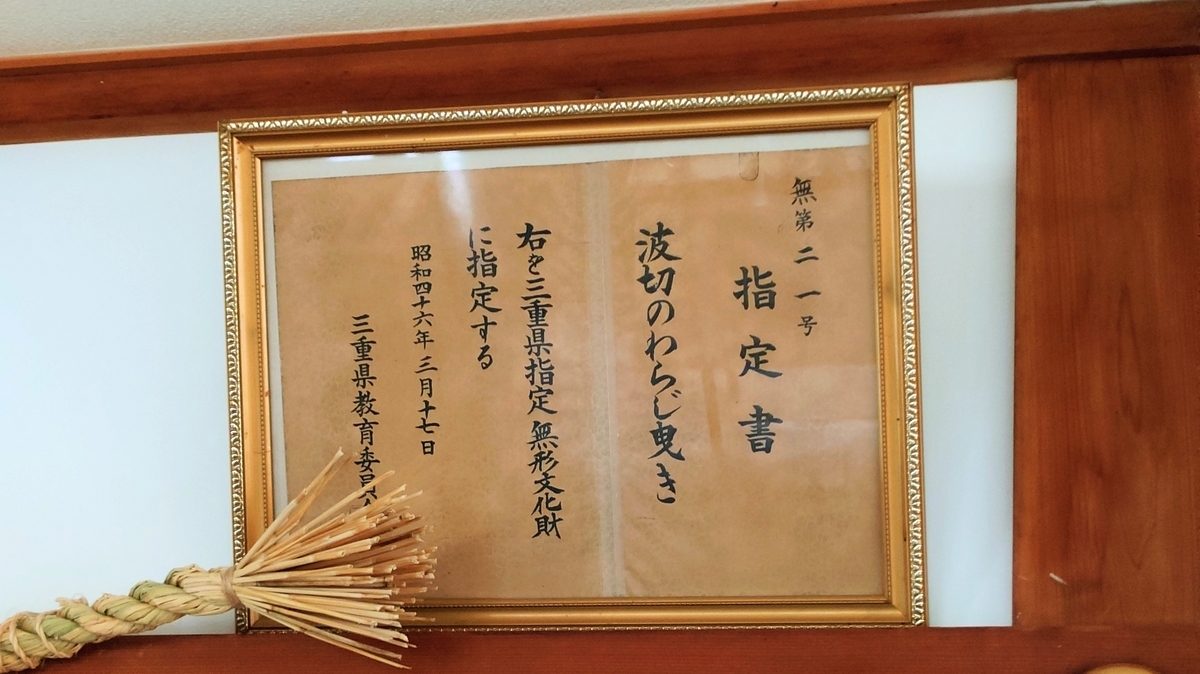 無第二一号
指定書
波切のわらじ曳き
右を三重県指定無形文化財
に指定する
昭和四十六年三月十七日
三重県教育委員